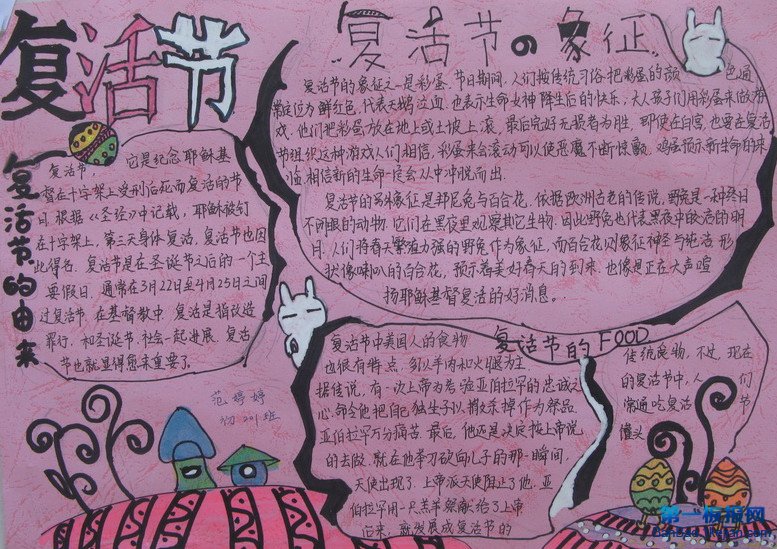 复活节
复活节的由来
复活节,它是纪念耶稣基
督在十字架上受刑后死而复活的节
日.根据《圣经》中记载,耶稣被钉
在十字架上,第三天身体复活,复活节也因
此得名.复活节是在圣诞节之后的一个主
要假日.通常在3月22日至4月25日之间
过复活节.在基督教中,复活是指改造
罪行,和圣诞节.社会一起进展.复活
节也就显得愈来重要了.
范婷婷
初201班
复活节の象征
复活节的象征之一是彩蛋.节日期间.人们按传统习俗把彩蛋的颜色通
常定位为鲜红色,代表天鹅泣血,也表示生命女神降生后的快乐,大人孩子们用彩蛋来做游
戏.他们把彩蛋放在地上或土坡上滚,最后完好无损者为胜.即使在白宫,也要在复活
节组织这种游戏人们相信,彩蛋来会滚动可以使恶魔不断惊颤.鸡蛋预示新生命的来
临.相信新的生命一定会从中冲脱而出.
复活节的另外象征是邦尼兔与百合花,依据欧洲古老的传说,野兔是一种终日
不闭眼的动物.它们在黑夜里观察其它生物.因此野兔也代表黑夜中皎洁的明
月.人们将春天繁殖力强的野兔作为象征,而百合花则象征神圣与纯洁.形
状像喇叭的百合花,预示着美好春天的到来.也像是正在大声喧
扬耶稣基督复活的好消息。
复活节的FOOD
复活节中美国人的食物
也很有特点,多以羊肉和火腿为主.
据传说,有一次上帝为考验亚伯拉罕的忠诚之
心.命令他把自己独生子以撒杀掉作为祭品.
亚伯拉罕万分痛苦.最后,他还是决定按上帝说
的去做.就在他举刀砍向儿子的那一瞬间.
天使出现了.上帝派天使阻止了他.亚
伯拉罕用一只羔羊祭献给了上帝
后来,就发展成复活节的
传统食物,不过,现在
的复活节中,人们
常通吃复活节
馒头
第一板报网